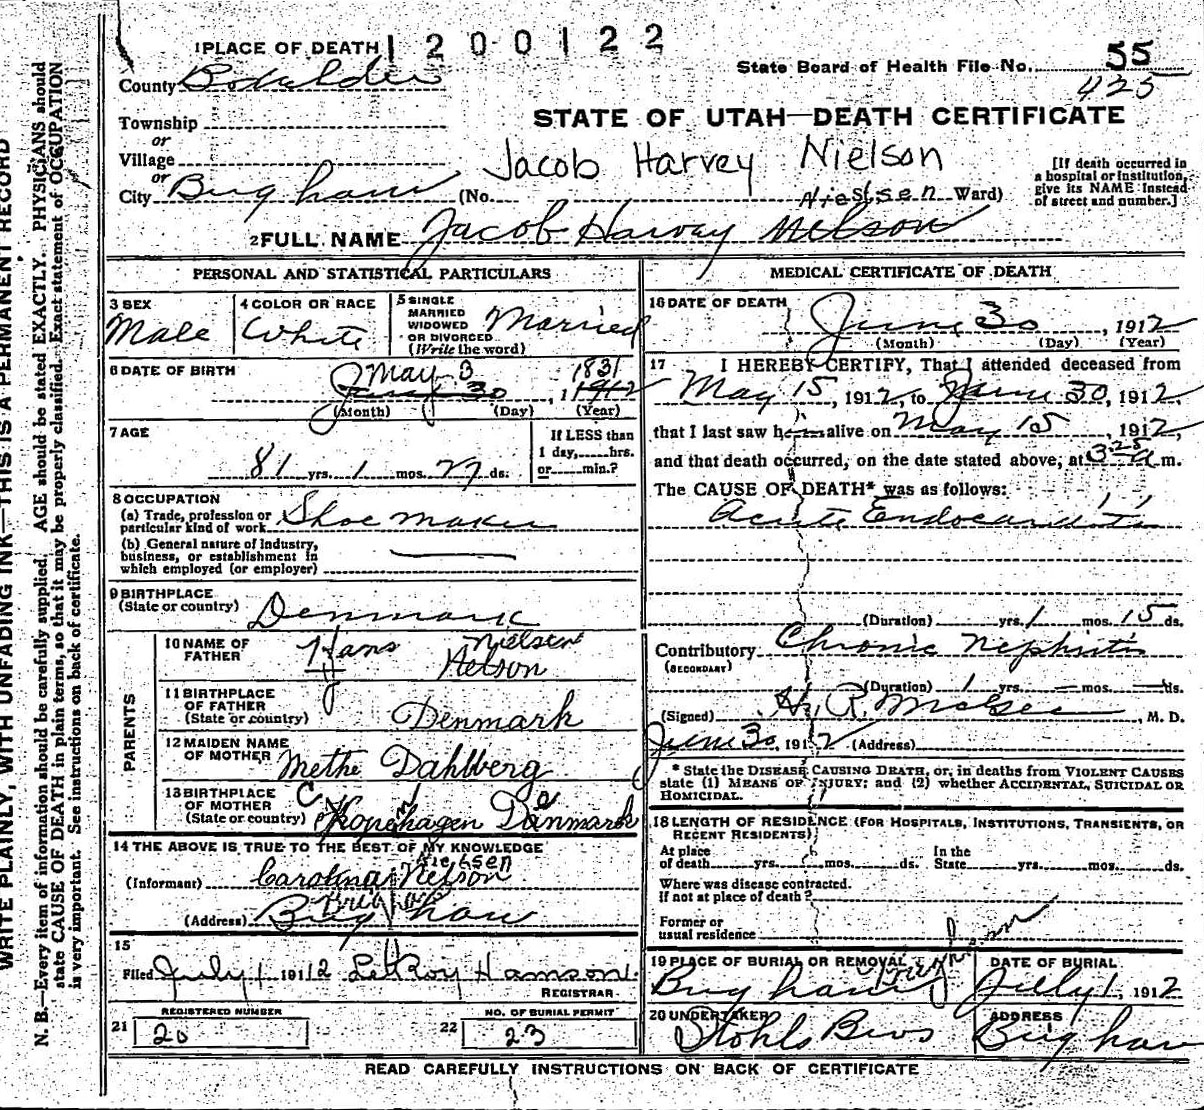 WRITE PLAINLY, WITH UNFADING INK—THIS IS A PERMANENT RECORD
N. B.—Every item of information should be carefully supplied. AGE should be stated EXACTLY. PHYSICIANS should
state CAUSE OF DEATH in plain terms, so that it may be properly classified. Exact statement of OCCUPATION
is very important. See instructions on back of certificate.
1 PLACE OF DEATH 1200122
State Board of Health File No. 55
425
County Boxelder
STATE OF UTAH—DEATH CERTIFICATE
Township
or
Village
or
City Brigham (No. Ward)
Jacob Harvey Nielson
Nielsen
[If death occurred in
a hospital or institution,
give its NAME instead
of street and number.]
2 FULL NAME Jacob Harvey Nelson
PERSONAL AND STATISTICAL PARTICULARS
3 SEX
Male
4 COLOR OR RACE
White
5 SINGLE
MARRIED
WIDOWED
OR DIVORCED
(Write the word)
Married
6 DATE OF BIRTH
May 3 1831
June 30, 1912
(Month) (Day) (Year)
7 AGE
81 yrs. 1 mos. 27 ds.
If LESS than
1 day, hrs.
or min.?
8 OCCUPATION
(a) Trade, profession or
particular kind of work Shoe maker
(b) General nature of Industry,
business, or establishment in
which employed (or employer)
9 BIRTHPLACE
(State or country) Denmark
PARENTS
10 NAME OF
FATHER Hans Nielsen
Nelson
11 BIRTHPLACE
OF FATHER
(State or country) Denmark
12 MAIDEN NAME
OF MOTHER Methe Dahlberg
13 BIRTHPLACE
OF MOTHER
(State or country) Kopenhagen Danmark
14 THE ABOVE IS TRUE TO THE BEST OF MY KNOWLEDGE
Nielsen
(Informant) Carolina Nelson
Brigham
(Address) Brigham
15
Filed July 1 1912 LeRoy Hamson.
REGISTRAR.
21 REGISTERED NUMBER
20
22 NO. OF BURIAL PERMIT
23
MEDICAL CERTIFICATE OF DEATH
16 DATE OF DEATH
June 30, 1912
(Month) (Day) (Year)
17 I HEREBY CERTIFY, That I attended deceased from
May 15, 1912, to June 30, 1912,
that I last saw him alive on May 15, 1912,
and that death occurred, on the date stated above, at 3 25 a m.
The CAUSE OF DEATH* was as follows:
Acute Endocarditis
(Duration) yrs. 1 mos. 15 ds.
Contributory Chronic Nephritis
(SECONDARY)
(Duration) 1 yrs. — mos. — ds.
(Signed) R. , M. D.
June 30, 1912 (Address)
* State the DISEASE CAUSING DEATH, or, in deaths from VIOLENT CAUSES
state (1) MEANS OF INJURY; and (2) whether ACCIDENTAL, SUICIDAL OR
HOMICIDAL.
18 LENGTH OF RESIDENCE (FOR HOSPITALS, INSTITUTIONS, TRANSIENTS, OR
RECENT RESIDENTS)
At place
of death yrs. mos. ds.
In the
State yrs. mos. ds.
Where was disease contracted.
If not at place of death?
Former or
usual residence
19 PLACE OF BURIAL OR REMOVAL
Brigham
Brigham
DATE OF BURIAL
July 1, 1912
20 UNDERTAKER
Stohls Bros
ADDRESS
Brigham
READ CAREFULLY INSTRUCTIONS ON BACK OF CERTIFICATE